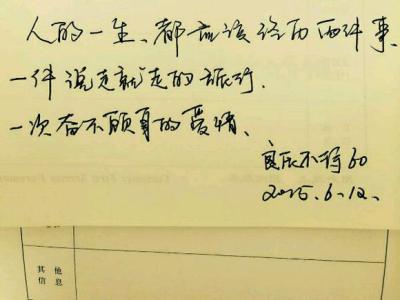 人的一生、都应该经历两件事、
一件说走就走的旅行.
一次奋不顾身的爱情.
良辰不待60
2015.6.12、
其他
信息